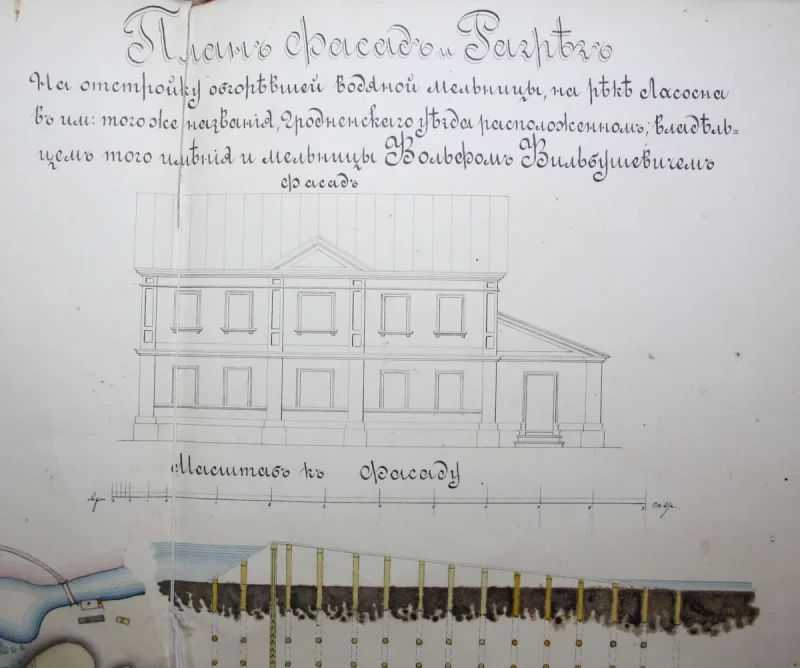 Планъ фасадъ и Разрѣзъ
На отстройку обгорѣвшей водяной мельницы, на рѣкѣ Лососна
въ им: того же названія, Гродненскаго уѣзда расположенном, владѣль=
цемъ того имѣнія и мельницы Вольфомъ Вильбушевичемъ
фасадъ
Масштабъ къ фасаду
саж.